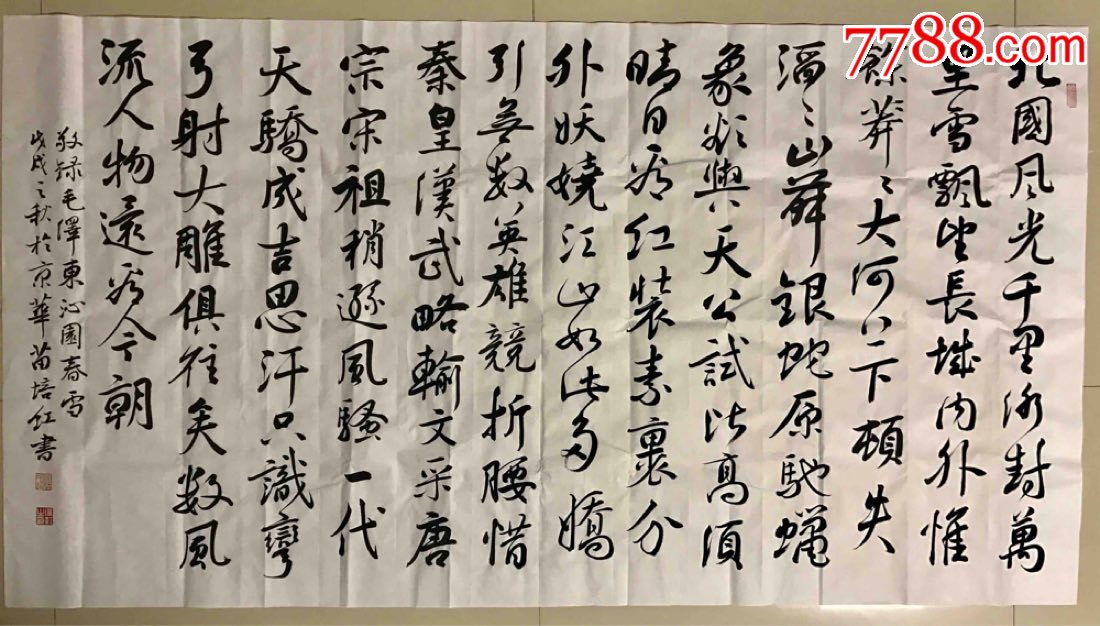 7788.com
北國風光千里冰封萬
里雪飄望長城內外惟
餘莽々大河上下頓失
滔々山舞銀蛇原馳蠟
象欲與天公試比高須
晴日看紅裝素裹分
外妖嬈江山如此多嬌
引無數英雄競折腰惜
秦皇漢武略輸文采唐
宗宋祖稍遜風騷一代
天驕成吉思汗只識彎
弓射大雕俱往矣數風
流人物還看今朝
敬録毛澤東沁園春雪
戊戌之秋於京華苗培紅書